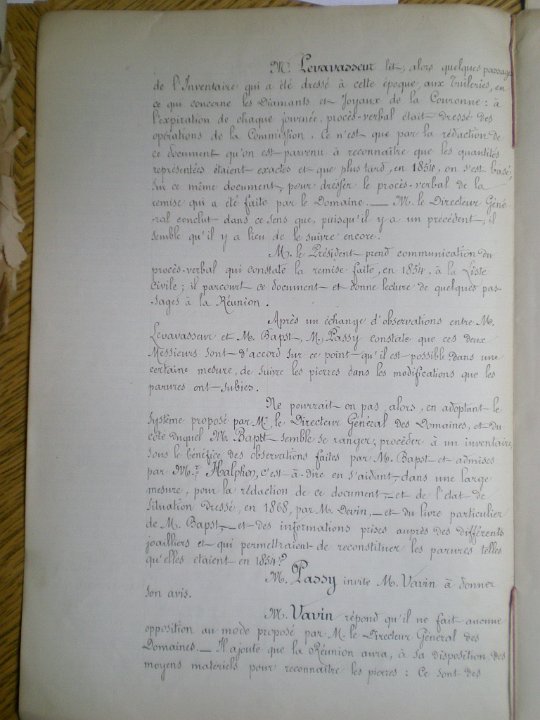 M. Levavasseur lit, alors quelques passages
de l'Inventaire qui a été dressé à cette époque, aux Tuileries, en
ce qui concerne les Diamants et Joyaux de la Couronne : à
l'expiration de chaque journée, procès-verbal était dressé des
opérations de la Commission. Ce n'est que par la rédaction de
ce document qu'on est parvenu à reconnaître que les quantités
représentées étaient exactes et que plus tard, en 1854, on s'est basé,
sur ce même document, pour dresser le procès-verbal de la
remise qui a été faite par le Domaine. — M. le Directeur Géné-
-ral conclut dans ce sens que, puisqu'il y a un précédent, il
semble qu'il y a lieu de le suivre encore.
M. le Président prend communication du
procès-verbal qui constate la remise faite, en 1854, à la Liste
Civile ; il parcourt ce document et donne lecture de quelques pas-
-sages à la Réunion.
Après un échange d'observations entre M.
Levavasseur et M. Bapst, M. Passy constate que ces deux
Messieurs sont d'accord sur ce point qu'il est possible dans une
certaine mesure, de suivre les pierres dans les modifications que les
parures ont subies.
Ne pourrait-on pas, alors, en adoptant le
système proposé par M. le Directeur Général des Domaines, et du
côté duquel M. Bapst semble se ranger, procéder à un inventaire
sous le bénéfice des observations faites par M. Bapst et admises
par M. Halphen, c'est-à-dire en s'aidant, dans une large
mesure, pour la rédaction de ce document — et de l'état de
situation dressé, en 1868, par M. Devin, — et du livre particulier
de M. Bapst, — et des informations prises auprès des différents
joailliers et qui permettraient de reconstituer les parures telles
qu'elles étaient en 1854 ?
M. Passy invite M. Vavin à donner
son avis.
M. Vavin répond qu'il ne fait aucune
opposition au mode proposé par M. le Directeur Général des
Domaines. — Il ajoute que la Réunion aura, à sa disposition des
moyens matériels pour reconnaître les pierres : Ce sont des